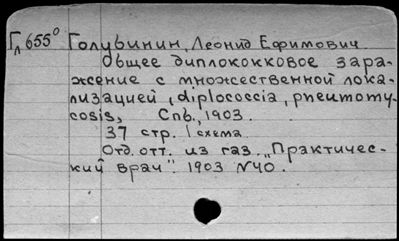 Гл 655⁰ Голубинин, Леонид Ефимович
Общее диплококковое зара-
жение с множественной лока-
лизацией, (diplococcia, pneumomy-
cosis, Спб., 1903.
37 стр. 1 схема
Отд. отт. из газ. „Практичес-
кий врач". 1903 №40.